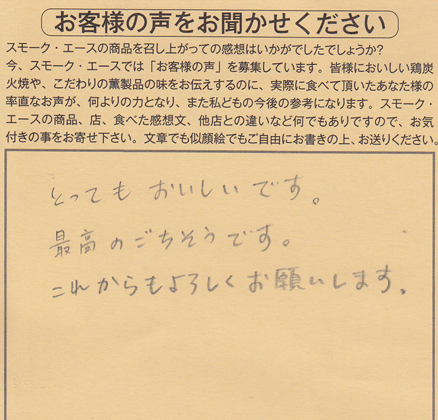 お客様の声をお聞かせください
スモーク・エースの商品を召し上がっての感想はいかがでしたでしょうか?
今、スモーク・エースでは「お客様の声」を募集しています。皆様においしい鶏炭
火焼や、こだわりの薫製品の味をお伝えするのに、実際に食べて頂いたあなた様の
率直なお声が、何よりの力となり、また私どもの今後の参考になります。スモーク・
エースの商品、店、食べた感想文、他店との違いなど何でもありですので、お気
付きの事をお寄せ下さい。文章でも似顔絵でもご自由にお書きの上、お送りください。
とってもおいしいです。
最高のごちそうです。
これからもよろしくお願いします。